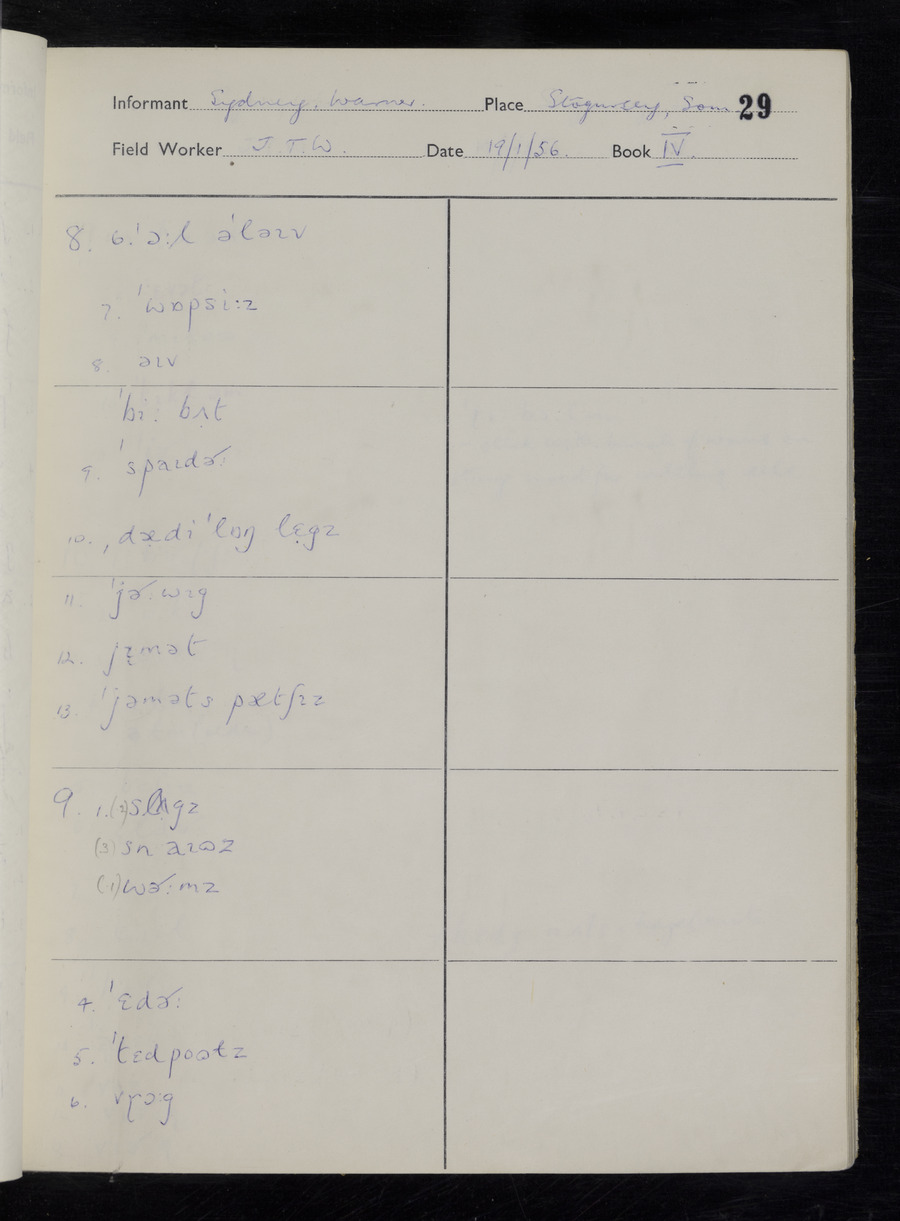 Informant Sydney. Warner. Place Stogursey, Som 29
Field Worker J. T. W. Date 19/1/56. Book IV.
8. 6. ˈɔ:l əˈləɪv
7. ˈwɒpsi:z
8. əɪv
ˈbi: bʌ̣t
9. ˈspaɪdɚ:
10. ˌdæ̣di ˈlɒŋ lɛ̣gz
11. ˈjɚ:wɪg
12. jɛ̣mət
13. ˈjəməts pætʃɪz
9. 1. (2) slʌgz
(3) snaɪʊz
(1) wɚ:mz
4. ˈɛdɚ:
5. ˈtɛdpoʊtz
6. vɽɔ:g